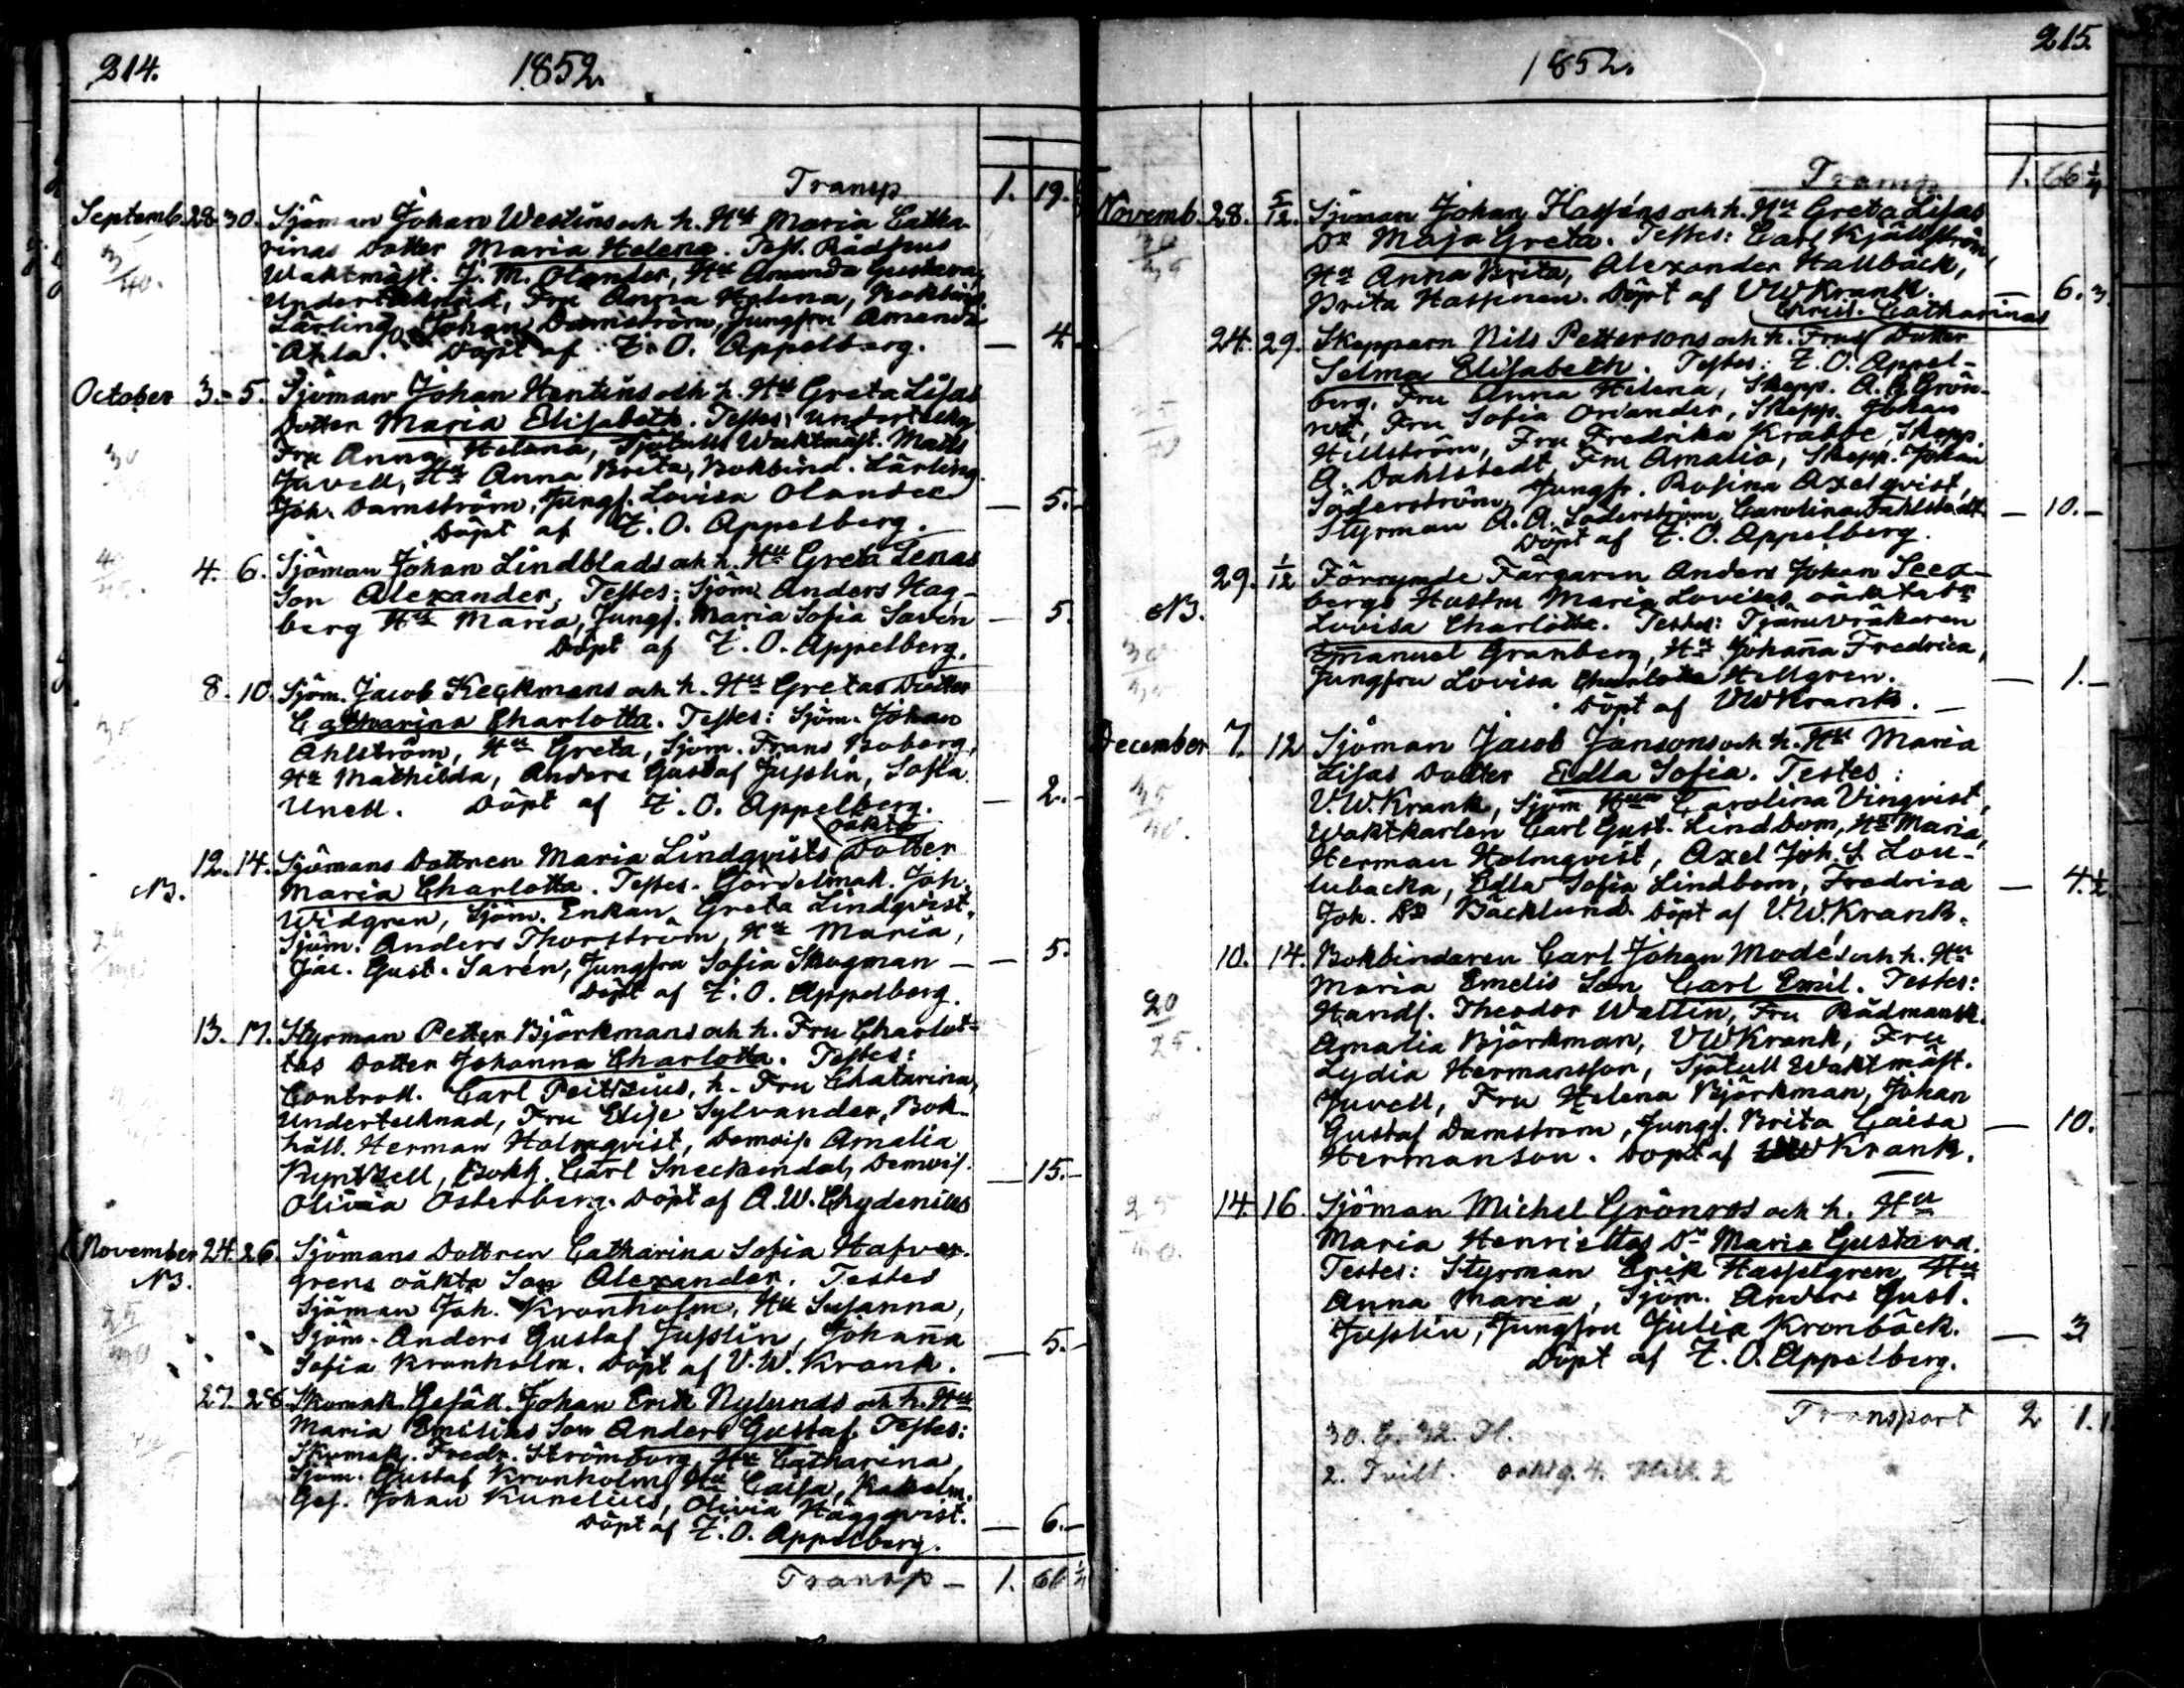 214.
1852.
Transp 1. 19.
Septemb. 28. 30. Sjöman Johan Westlins och h. Hu Maria Catha-
rinas Dotter Maria Helena. Test. Rådhus
Waktmäst. J. M. Olander, Hu Amanda Gustava,
Undertecknad, Fru Anna Helena, Bokbind.
Lärling Johan Damström, Jungfru Amanda
Ahla. Döpt af Z. O. Appelberg. — 4.
October 3. 5. Sjöman Johan Hentins och h. Hu Greta Lisas
Dotter Maria Elisabeth. Testes: Underteckn.
Fru Anna Helena, Sjötulls Waktmäst. Mats
Juvell, Hu Anna Brita, Bokbind. Lärling.
Joh. Damström, Jungf. Lovisa Olander — 5.
Döpt af Z. O. Appelberg.
4. 6. Sjöman Johan Lindblads och h. Hu Greta Lenas
Son Alexander. Testes: Sjöm. Anders Hag-
berg Hu Maria, Jungf. Maria Sofia Savén — 5.
Döpt af Z. O. Appelberg.
8. 10. Sjöm. Jacob Keckmans och h. Hu Gretas Dotter
Catharina Charlotta. Testes: Sjöm. Johan
Ahlström, Hu Greta, Sjöm. Frans Boberg,
Hu Mathilda, Anders Gustaf Juslin, Sofia
Unell. Döpt af Z. O. Appelberg. — 2.
oäkta
12. 14. Sjömans Dottren Maria Lindqvists Dotter
NB. Maria Charlotta. Testes. Gördelmak. Joh.
Widgren, Sjöm. Enkan Greta Lindqvist,
Sjöm. Anders Thorström, Hu Maria,
Jac. Gust. Sarén, Jungfru Sofia Skogman — 5.
Döpt af Z. O. Appelberg.
13. 17. Styrman Petter Björkmans och h. Fru Charlot-
tas Dotter Johanna Charlotta. Testes:
Controll. Carl Peitzius, h. Fru Chatarina,
Undertecknad, Fru Elise Sylvander, Bok-
håll. Herman Holmqvist, Demois. Amalia
Kyntzell, Bokh. Carl Sneckendal, Demois. — 15.
Olivia Österberg. Döpt af A. W. Chydenius
November 24. 26. Sjömans Dottren Catharina Sofia Hafver-
NB. grens oäkta Son Alexander. Testes
Sjöman Joh. Kronholm, Hu Susanna,
Sjöm. Anders Gustaf Juslin, Johanna
Sofia Kronholm. Döpt af V. W. Krank. — 5.
27. 28. Skomak. Gesäll. Johan Erik Nylunds och h. Hu
Maria Emilias Son Anders Gustaf. Testes:
Skomak. Fredr. Strömborg, Hu Catharina,
Sjöm. Gustaf Kronholm, Hu Caisa, Kakelm.
Ges. Johan Kunelius, Olivia Häggqvist.
Döpt af Z. O. Appelberg. — 6.
Transp — 1. 66 1/4
215.
1852.
Transp 1. 66 1/4
Novemb. 28. 5/12. Sjöman Johan Hasséns och h. Hu Greta Lisas
Dr Maja Greta. Testes: Carl Kjällström,
Hu Anna Brita, Alexander Hallbäck,
Brita Hassinen. Döpt af VWKrank. — 6. 3
Christ. Catharinas
24. 29. Skepparn Nils Pettersons och h. Frus Dotter
Selma Elisabeth. Testes: Z. O. Appel-
berg, Fru Anna Helena, Skepp. A. G. Grön-
, Fru Sofia , Skepp. Johan
Hellström, Fru Fredrika Krabbe, Skepp.
A. Dahlstedt, Fru Amalia, Skepp. Johan
Söderström, Jungfr. Rosina Axelqvist,
Styrman A. A. Söderström, Carolina Dahlstedt. — 10. —
Döpt af Z. O. Appelberg.
29. 1/12 Förrymde Färgaren Anders Johan
NB. bergs Hustru Maria Lovisas oäkta Dr
Lovisa Charlotta. Testes: Tjäruvräkaren
Emanuel Granberg, Hu Johanna Fredrica,
Jungfru Lovisa Charlotta Hellgren. — 1. —
Döpt af VWKrank.
December 7. 12 Sjöman Jacob Jansons och h. Hu Maria
Lisas Dotter Edla Sofia. Testes:
V. W. Krank, Sjöm Hun Carolina Vinqvist,
Waktkarlen Carl Gust. Lindbom, Hu Maria,
Herman Holmqvist, Axel Joh. S. Lou-
lubacka, Edla Sofia Lindbom, Fredrica — 4. 1/2
Joh. Dr Bäcklund. Döpt af V. W. Krank.
10. 14. Bokbindaren Carl Johan Modés och h. Hu
Maria Emelis Son Carl Emil. Testes:
20/25. Handl. Theodor Wallin, Fru Rådmansk.
Amalia Björkman, VWKrank, Fru
Lydia Hermansson, Sjötull Waktmäst.
Juvell, Fru Helena Björkman, Johan
Gustaf Damstrom, Jungf. Brita Caisa — 10.
Hermanson. Döpt af VWKrank.
14. 16. Sjöman Michel Grönros och h. Hu
Maria Henriettas Dr Maria Gustava.
Testes: Styrman Erik Hasselgren, Hu
Anna Maria, Sjöm. Anders Gust.
Juslin, Jungfru Julia Kronbäck. — 3
Döpt af Z. O. Appelberg.
Transport 2 1. 1
30. G. 32. Fl.
2. Tvill. oäkta. 4.